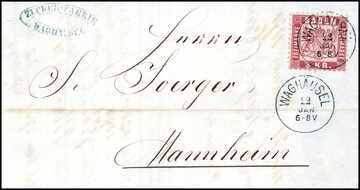 ZUCKER-FABRIK
WAGHÄUSEL
Herrn
S. Joerger
Mannheim
WAGHÄUSEL
22
JAN
6-8V
WAGHÄUSEL
22
JAN
6-8V
3 KR.